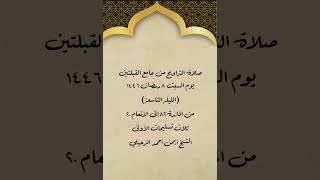 صلاة التراويح من جامع القبلتين
يوم السبت ٨ رمضان ١٤٤٦
(الليلة التاسعة)
من المائدة ٨٢ الى الأنعام ٢٠
ثلاث تسليمات الأولى
الشيخ ايمن احمد الرحيلي